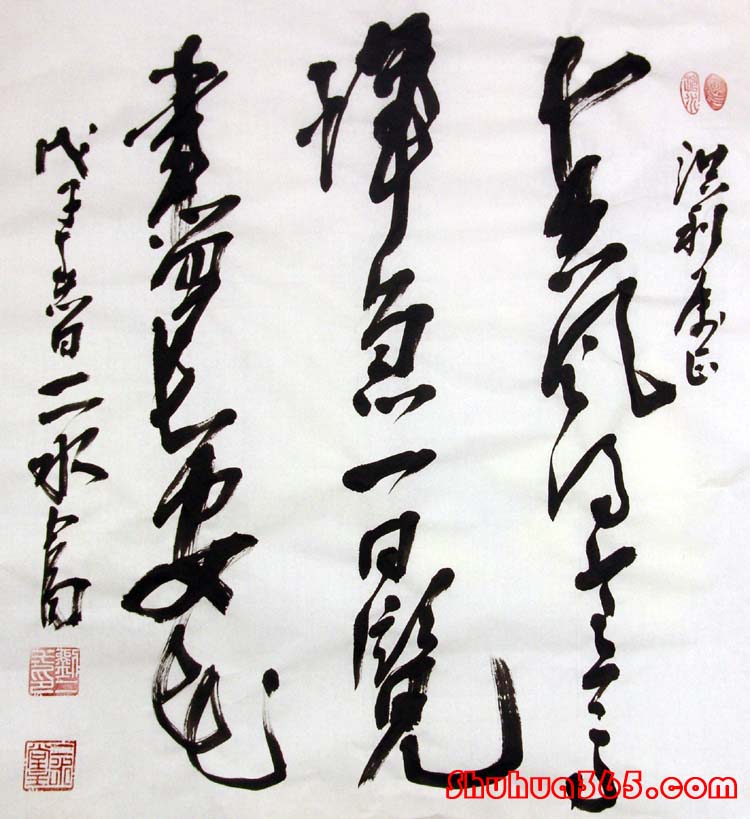 洪利属正
春風得意馬
蹄急一日覽
盡長安花
戊子吉日二水書
Shuhua365.com